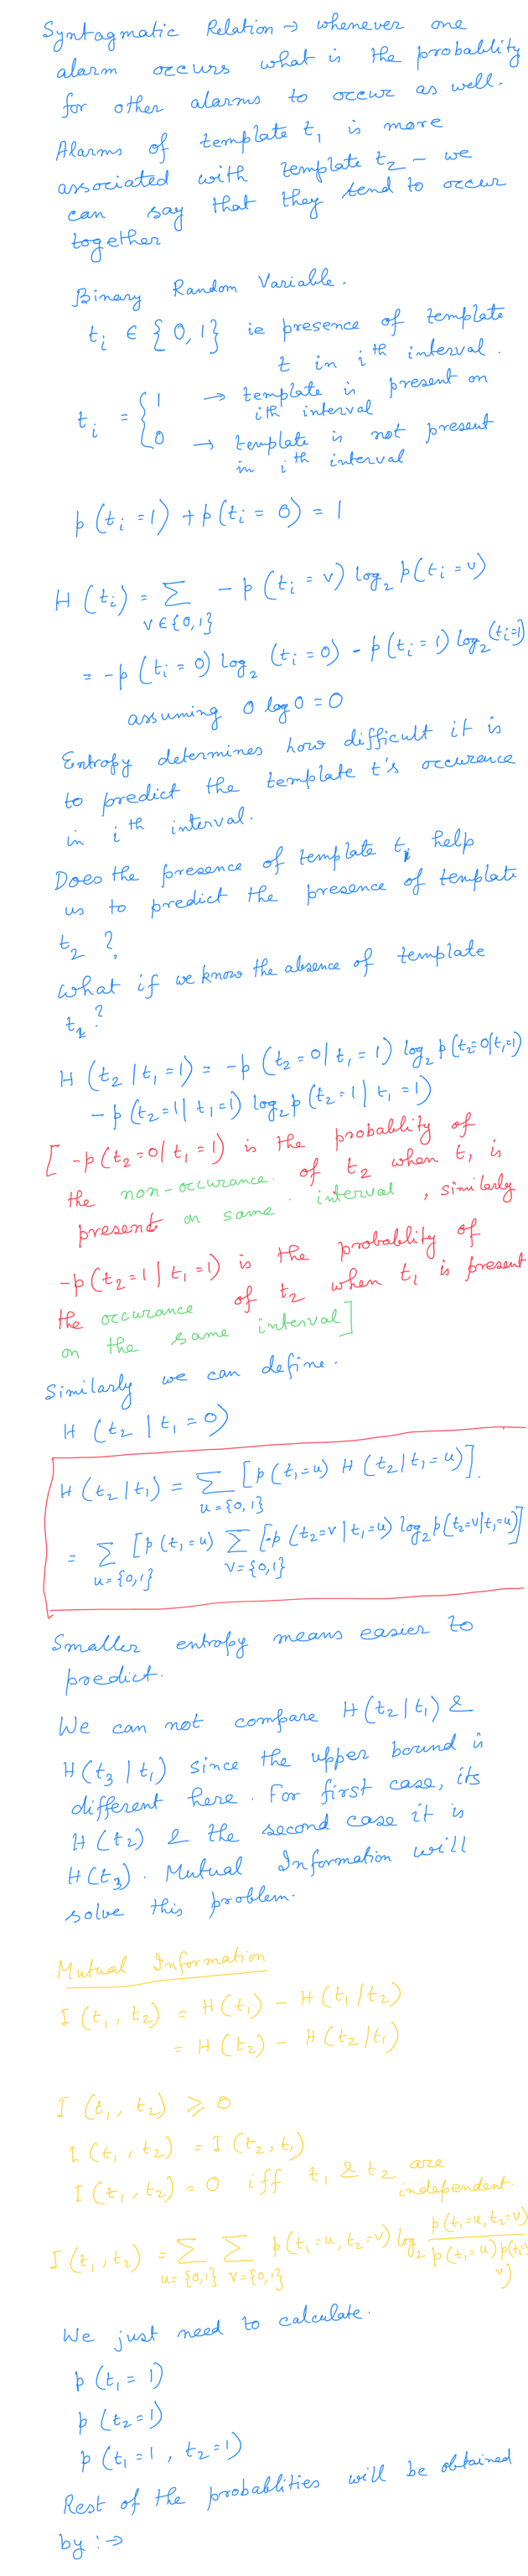 Syntagmatic Relation → whenever one
alarm occurs what is the probablity
for other alarms to occur as well.
Alarms of template t₁ is more
associated with template t₂ – we
can say that they tend to occur
together
Binary Random Variable.
tᵢ ∈ {0,1} ie presence of template
t in i th interval.
tᵢ = { 1 → template is present on
ith interval
0 → template is not present
in i th interval
p(tᵢ=1) + p(tᵢ = 0) = 1
H(tᵢ) = Σ_{v∈{0,1}} - p(tᵢ = v) log₂ p(tᵢ = v)
= -p(tᵢ = 0) log₂ (tᵢ = 0) - p(tᵢ = 1) log₂ (tᵢ=1)
assuming 0 log 0 = 0
Entropy determines how difficult it is
to predict the template t's occurence
in i th interval.
Does the presence of template t₁ help
us to predict the presence of template
t₂ ?
What if we know the absence of template
t₁?
H(t₂ | t₁ = 1) = -p(t₂ = 0 | t₁ = 1) log₂ p(t₂=0|t₁=1)
- p(t₂ = 1 | t₁ = 1) log₂ p(t₂ = 1 | t₁ = 1)
[ -p(t₂ = 0 | t₁ = 1) is the probablity of
the non-occurance of t₂ when t₁ is
present on same interval, similarly
-p(t₂ = 1 | t₁ = 1) is the probablity of
the occurance of t₂ when t₁ is present
on the same interval]
Similarly we can define.
H(t₂ | t₁ = 0)
H(t₂ | t₁) = Σ_{u={0,1}} [p(t₁=u) H(t₂ | t₁ = u)].
= Σ_{u={0,1}} [p(t₁=u) Σ_{v={0,1}} [-p(t₂=v | t₁=u) log₂ p(t₂=v|t₁=u)]]
Smaller entropy means easier to
predict.
We can not compare H(t₂ | t₁) &
H(t₃ | t₁) since the upper bound is
different here. For first case, its
H(t₂) & the second case it is
H(t₃). Mutual Information will
solve this problem.
Mutual Information
I(t₁, t₂) = H(t₁) - H(t₁ | t₂)
= H(t₂) - H(t₂ | t₁)
I(t₁, t₂) ≥ 0
I(t₁, t₂) = I(t₂, t₁)
I(t₁, t₂) = 0 iff t₁ & t₂ are
independent.
I(t₁, t₂) = Σ_{u={0,1}} Σ_{v={0,1}} p(t₁=u, t₂=v) log₂ p(t₁=u, t₂=v) / p(t₁=u) p(t₂=v)
We just need to calculate.
p(t₁ = 1)
p(t₂ = 1)
p(t₁ = 1, t₂ = 1)
Rest of the probablities will be obtained
by : →